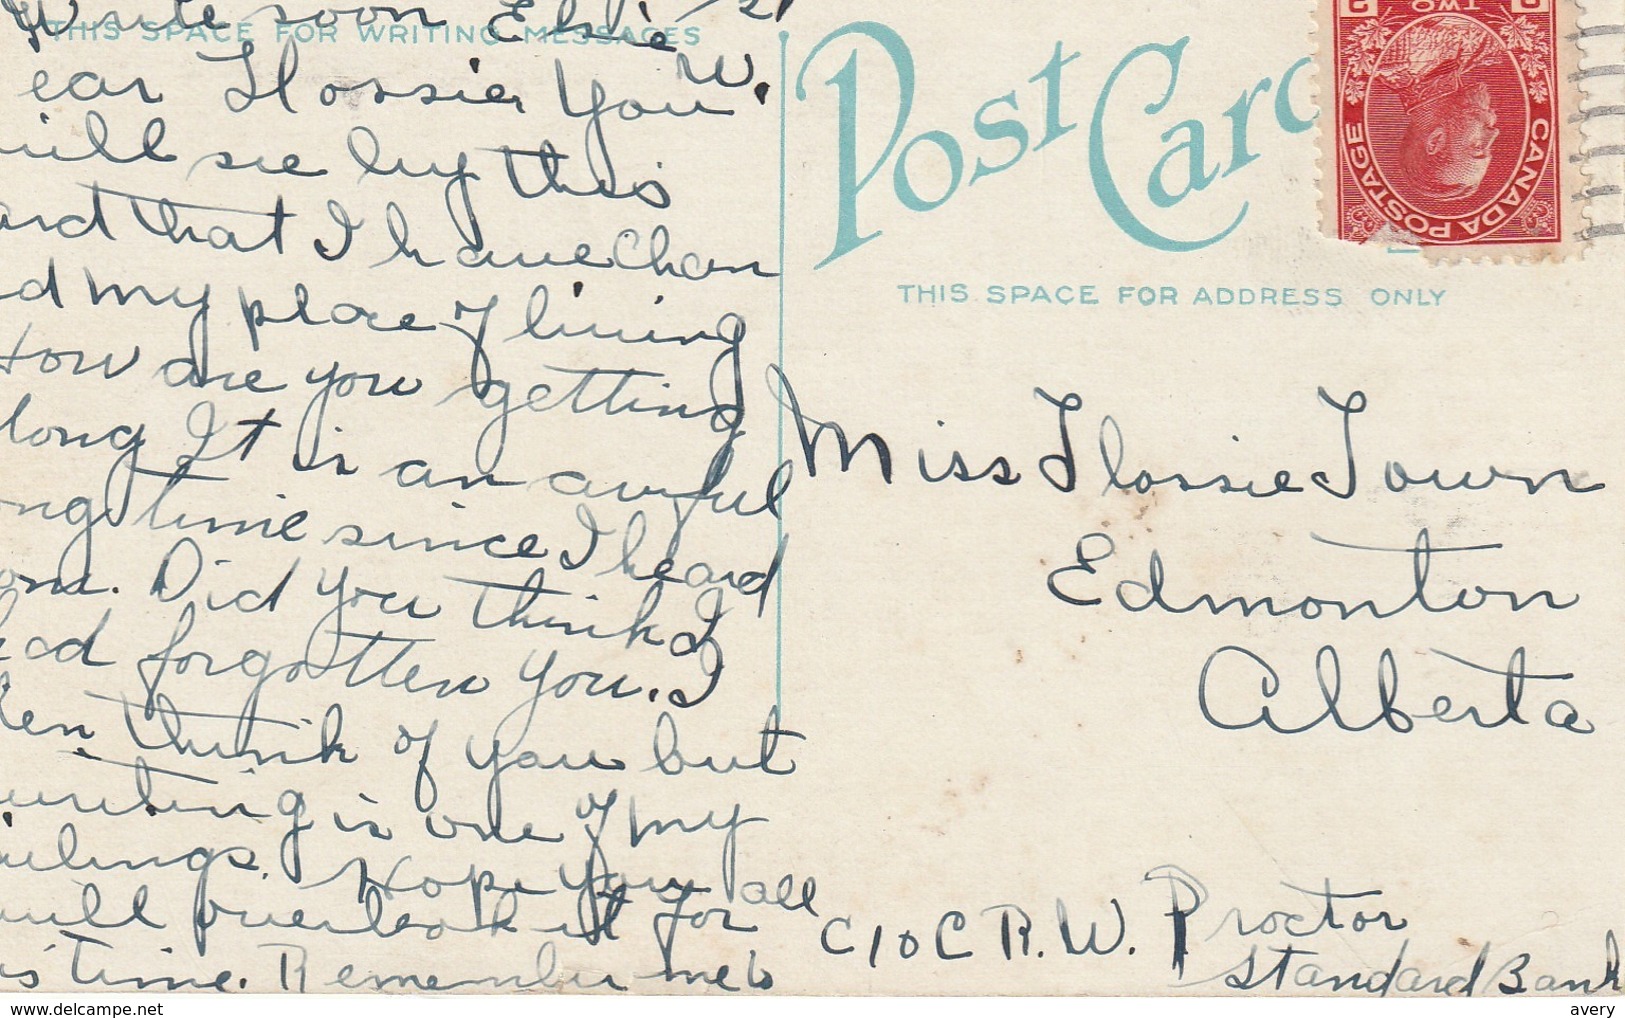 Write soon Elsie /21
W.
THIS SPACE FOR WRITING MESSAGES
ear Flossie You
will see by this
ard that I have chan
d my place of living
How are you getting
long It is an awful
ng time since I heard
om. Did you think I
had forgotten you. I
ten think of you but
writing is one of my
ailings. Hope you all
will overlook it for
is time. Remember me to
Post Card
THIS SPACE FOR ADDRESS ONLY
CANADA POSTAGE
TWO
Miss Flossie Town
Edmonton
Alberta
C/o C R. W. Proctor
Standard Bank
www.delcampe.net
avery